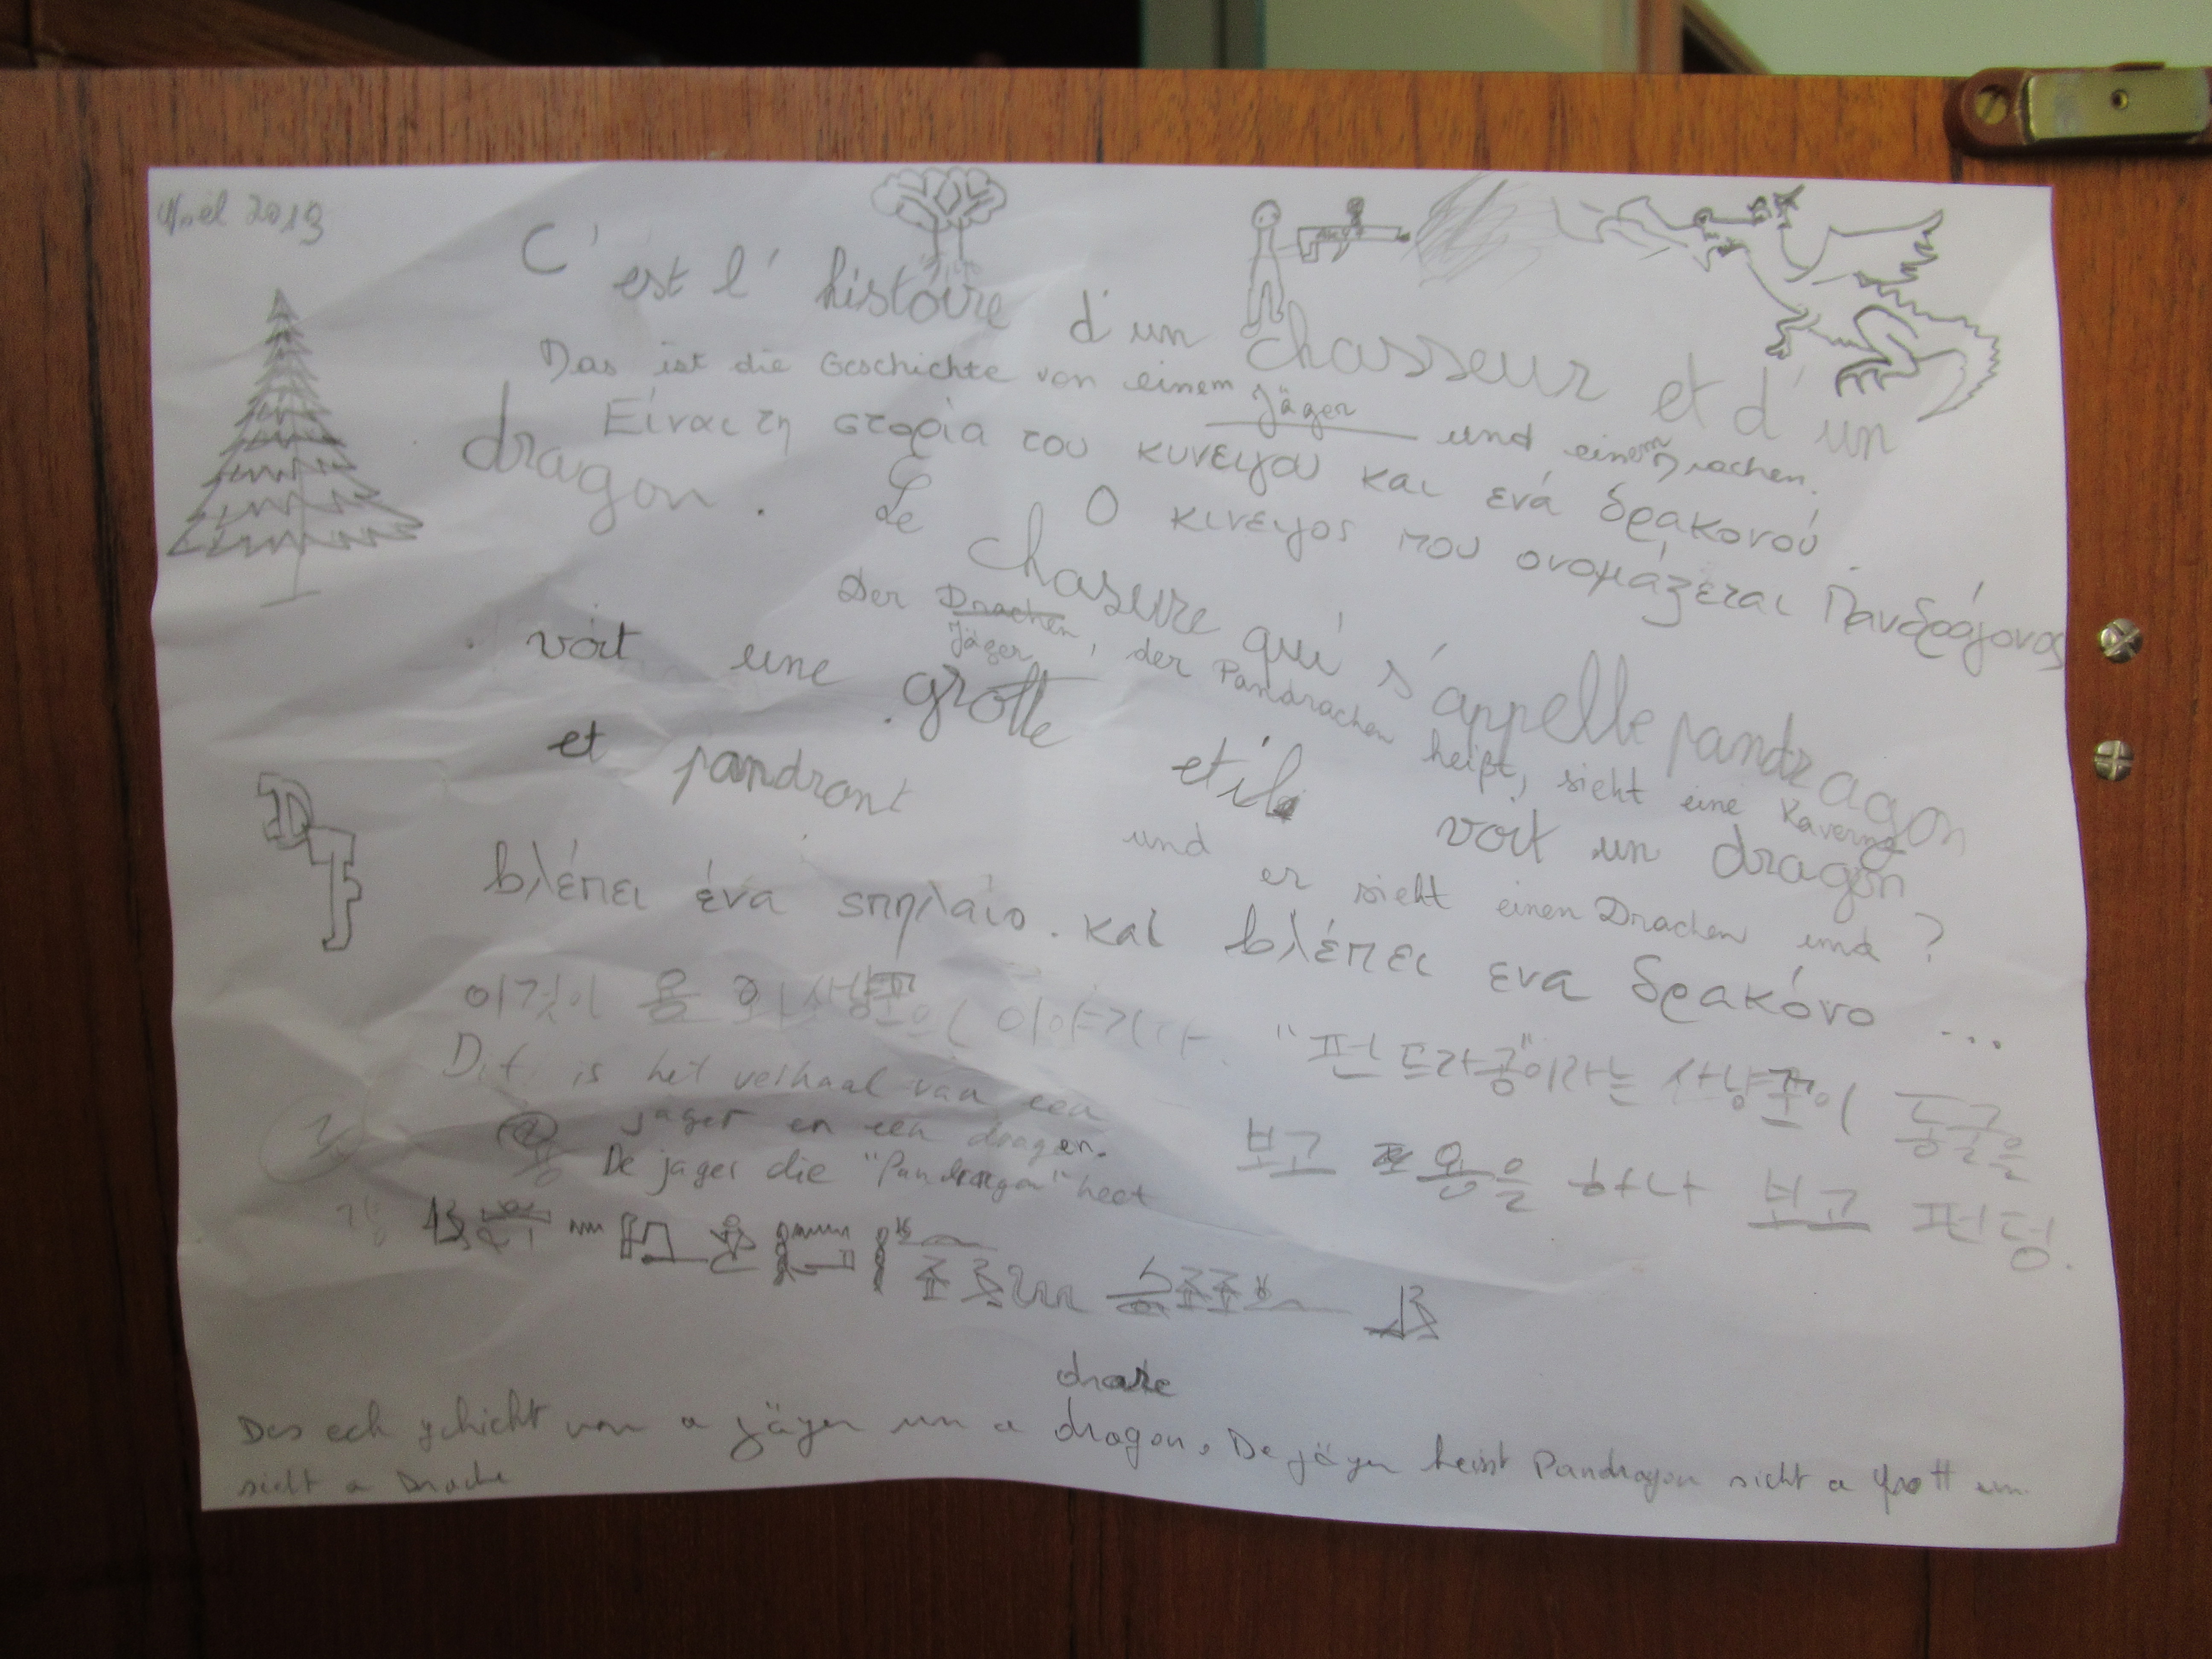 Noël 2019
C'est l'histoire d'un chasseur et d'un
Das ist die Geschichte von einem Jäger und einem Drachen.
dragon. Le chasure qui s'appelle pandragon
Είναι τη στορία του κυνειγου και ενά δρακονού.
Ο κινειγος που ονομάζεται Πανδράγονας
Der Drachen Jäger, der Pandrachen heißt, sieht eine Kaverne
voit une grotte et il voit un dragon
und er sieht einen Drachen und ?
et pandront
DTF
βλέπει ένα sπηλαίο. και βλέπει ενα δρακόνο ...
이것이 용 와 사냥꾼의 이야기다. "펀드라공"이라는 사냥꾼이 동굴을
보고 용을 하나 보고 펀덩.
Dit is het verhaal van een
jager en een dragen.
De jager die "Pandragon" heet
drake
Des ech gchicht von a jäger un a dragon. De jäger heisst Pandragon sieht a grott un
sieht a Drache